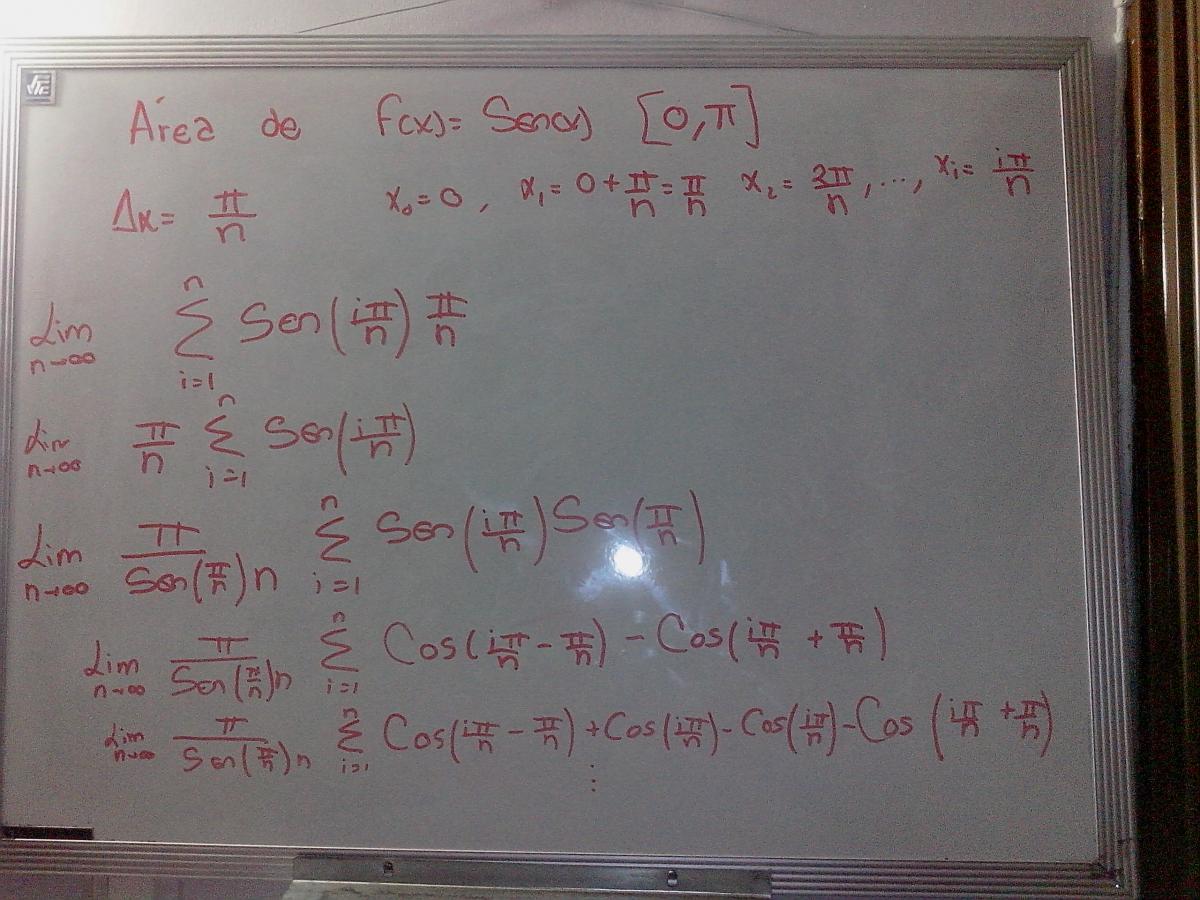 Área de f(x)= Sen(x) [0,π]
Δx= π/n x₀=0, x₁= 0+π/n=π/n x₂= 2π/n,..., xᵢ= iπ/n
Lim n→∞ Σ i=1 n Sen(iπ/n) π/n
Lim n→∞ π/n Σ i=1 n Sen(iπ/n)
Lim n→∞ π/Sen(π/n)n Σ i=1 n Sen(iπ/n)Sen(π/n)
Lim n→∞ π/Sen(π/n)n Σ i=1 n Cos(iπ/n - π/n) - Cos(iπ/n + π/n)
Lim n→∞ π/Sen(π/n)n Σ i=1 n Cos(iπ/n - π/n) + Cos(iπ/n) - Cos(iπ/n) - Cos(iπ/n + π/n)
⋮